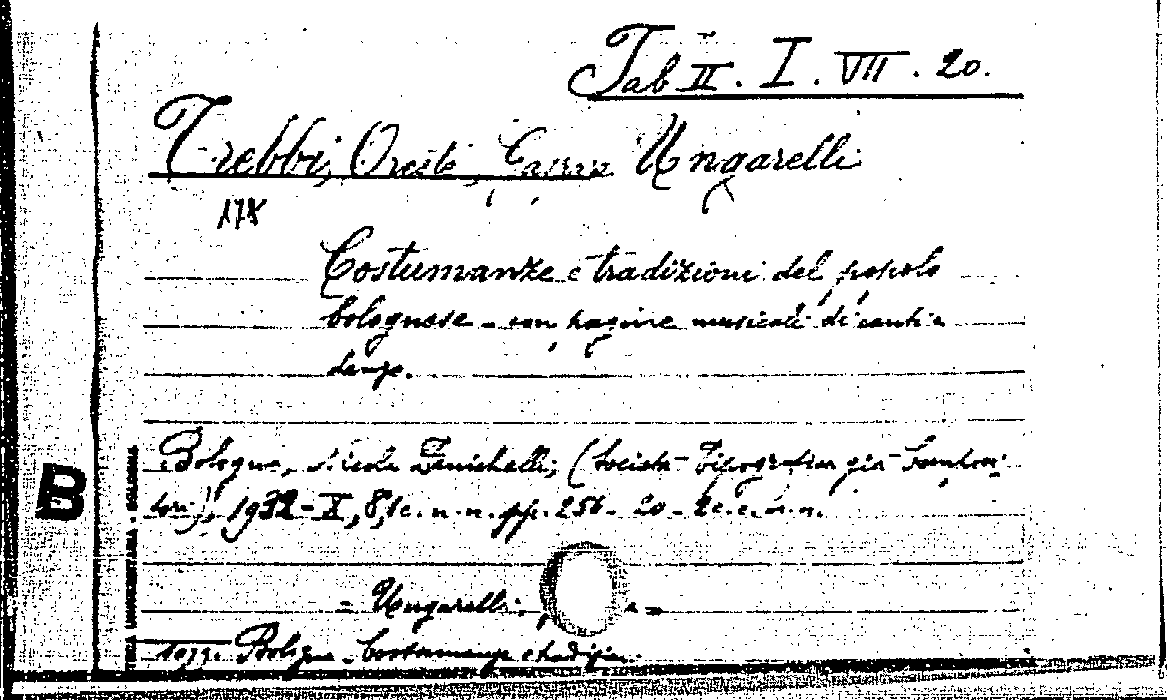 Tab II. I. VII. 20.
Trebbi, Oreste, Gaspare Ungarelli
178
Costumanze e tradizioni del popolo
bolognese - con pagine musicali di canti e
danze.
Bologna, Nicola Zanichelli, (Società Tipografica già Compositori), 1932-X, 8°, 1 c. n. n. pp. 256 - 20 - 2 c. n. n.
B
- Ungarelli:
sogg. Bologna - Costumanze e tradizioni.
UNIVERSITARIA - BOLOGNA